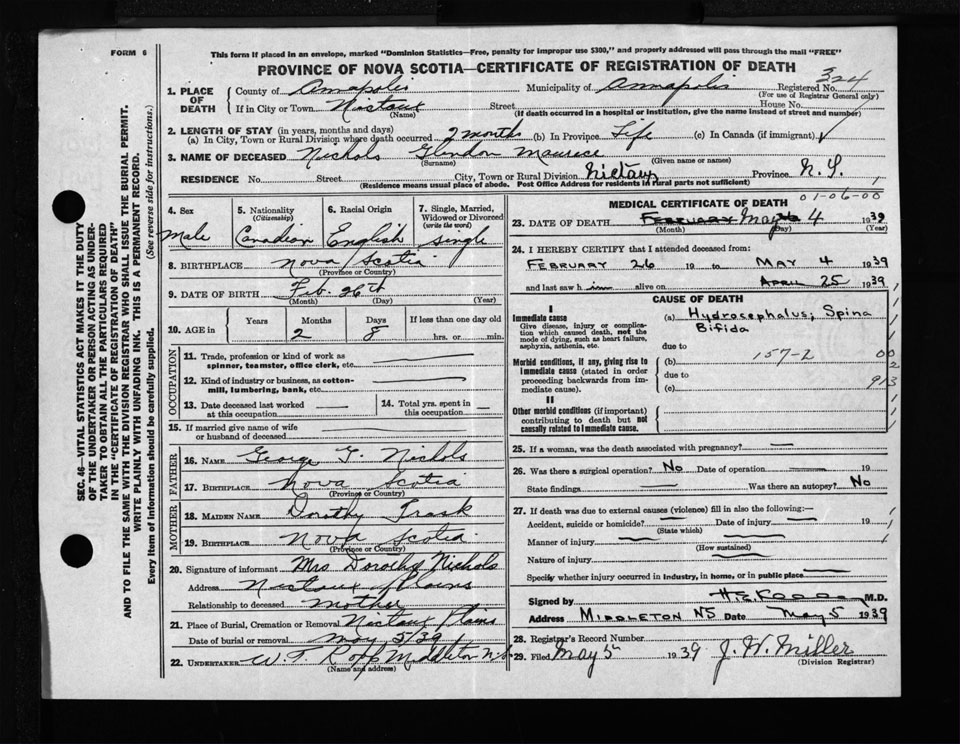 FORM 6
This form if placed in an envelope, marked "Dominion Statistics—Free, penalty for improper use $300," and properly addressed will pass through the mail "FREE"
PROVINCE OF NOVA SCOTIA—CERTIFICATE OF REGISTRATION OF DEATH
SEC. 46—VITAL STATISTICS ACT MAKES IT THE DUTY
OF THE UNDERTAKER OR PERSON ACTING AS UNDER-
TAKER TO OBTAIN ALL THE PARTICULARS REQUIRED
IN THE "CERTIFICATE OF REGISTRATION OF DEATH"
AND TO FILE THE SAME WITH THE DIVISION REGISTRAR WHO SHALL ISSUE THE BURIAL PERMIT.
WRITE PLAINLY WITH UNFADING INK. THIS IS A PERMANENT RECORD.
Every item of information should be carefully supplied. (See reverse side for instructions.)
1. PLACE OF DEATH
County of Annapolis Municipality of Annapolis Registered No. 324
(For use of Registrar General only)
If in City or Town Nictaux Street House No.
(Name) (If death occurred in a hospital or institution, give the name instead of street and number)
2. LENGTH OF STAY (in years, months and days)
(a) In City, Town or Rural Division where death occurred 2 months (b) In Province Life (c) In Canada (if immigrant)
3. NAME OF DECEASED Nichols Glendon Maurice
(Surname) (Given name or names)
RESIDENCE No. Street City, Town or Rural Division Nictaux Province N.S.
(Residence means usual place of abode. Post Office Address for residents in rural parts not sufficient)
4. Sex
Male
5. Nationality
(Citizenship)
Canadian
6. Racial Origin
English
7. Single, Married,
Widowed or Divorced
(write the word)
single
8. BIRTHPLACE Nova Scotia
(Province or Country)
9. DATE OF BIRTH Feb. 26th
(Month) (Day) (Year)
10. AGE in
Years Months Days If less than one day
2 8 hrs. or min.
OCCUPATION
11. Trade, profession or kind of work as
spinner, teamster, office clerk, etc.
12. Kind of industry or business, as cotton-
mill, lumbering, bank, etc.
13. Date deceased last worked
at this occupation
14. Total yrs. spent in
this occupation
15. If married give name of wife
or husband of deceased
FATHER
16. NAME George T. Nichols
17. BIRTHPLACE Nova Scotia
(Province or Country)
MOTHER
18. MAIDEN NAME Dorothy Trask
19. BIRTHPLACE Nova Scotia
(Province or Country)
20. Signature of informant Mrs Dorothy Nichols
Address Nictaux Plains
Relationship to deceased mother
21. Place of Burial, Cremation or Removal Nictaux Plains
Date of burial or removal May 5/39
22. UNDERTAKER W. T. Middleton N.S.
(Name and Address)
MEDICAL CERTIFICATE OF DEATH 01-06-00
23. DATE OF DEATH February May 4 1939
(Month) (Day) (Year)
24. I HEREBY CERTIFY that I attended deceased from:
FEBRUARY 26 19 to MAY 4 1939
and last saw him alive on APRIL 25 1939
CAUSE OF DEATH
I
Immediate cause
Give disease, injury or complica-
tion which caused death, not the
mode of dying, such as heart failure,
asphyxia, asthenia, etc.
(a) Hydrocephalus, Spina
Bifida
due to
Morbid conditions, if any, giving rise to
immediate cause (stated in order
proceeding backwards from im-
mediate cause).
(b) 157-2 00
due to
(c) 913
II
Other morbid conditions (if important)
contributing to death but not
causally related to immediate cause.
25. If a woman, was the death associated with pregnancy?
26. Was there a surgical operation? No Date of operation 19
State findings Was there an autopsy? No
27. If death was due to external causes (violence) fill in also the following:—
Accident, suicide or homicide? Date of injury 19
(State which)
Manner of injury
(How sustained)
Nature of injury
Specify whether injury occurred in industry, in home, or in public place
Signed by M.D.
Address MIDDLETON NS Date May 5 1939
28. Registrar's Record Number
29. Filed May 5th 1939 J. W. Miller
(Division Registrar)